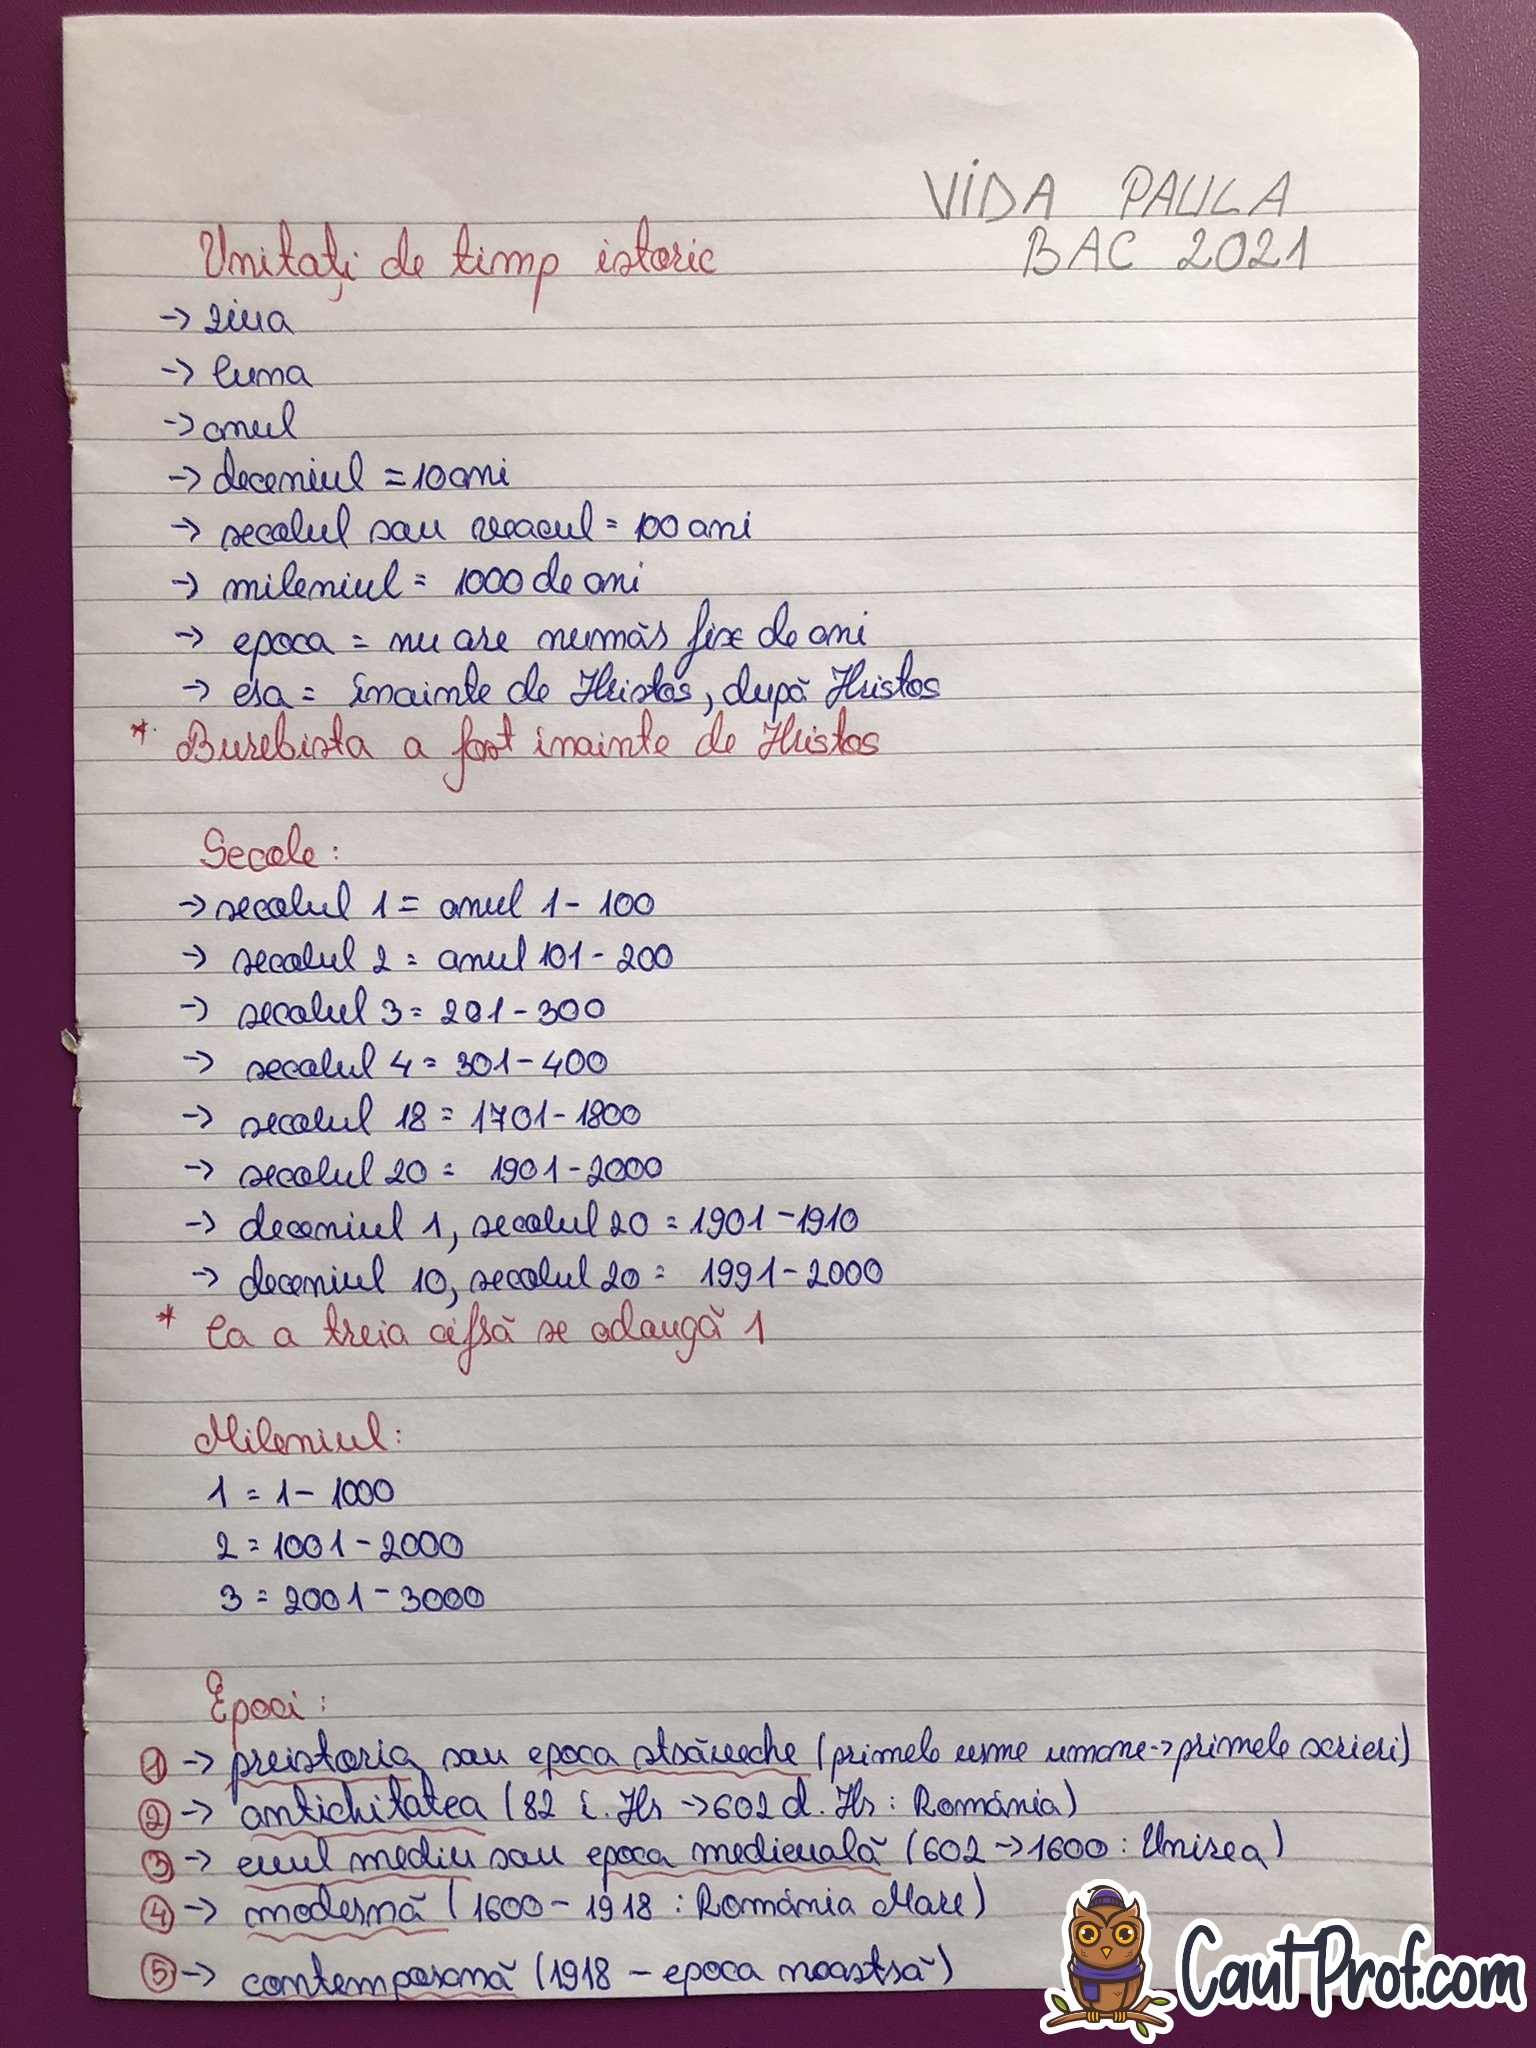 VIDA PAULA
BAC 2021
Unitați de timp istoric
-> ziua
-> luna
-> anul
-> deceniul = 10 ani
-> secolul sau veacul = 100 ani
-> mileniul = 1000 de ani
-> epoca = nu are număr fix de ani
-> era = înainte de Hristos, după Hristos
* Burebista a fost înainte de Hristos
Secole:
-> secolul 1 = anul 1 - 100
-> secolul 2 = anul 101 - 200
-> secolul 3 = 201 - 300
-> secolul 4 = 301 - 400
-> secolul 18 = 1701 - 1800
-> secolul 20 = 1901 - 2000
-> deceniul 1, secolul 20 = 1901 - 1910
-> deceniul 10, secolul 20 = 1991 - 2000
* La a treia cifră se adaugă 1
Mileniul:
1 = 1 - 1000
2 = 1001 - 2000
3 = 2001 - 3000
Epoci:
1 -> preistoria sau epoca străveche (primele urme umane -> primele scrieri)
2 -> antichitatea (82 î. Hr -> 602 d. Hr : România)
3 -> evul mediu sau epoca medievală (602 -> 1600 : Unirea)
4 -> modernă (1600 - 1918 : România Mare)
5 -> contemporană (1918 - epoca noastră)
CautProf.com